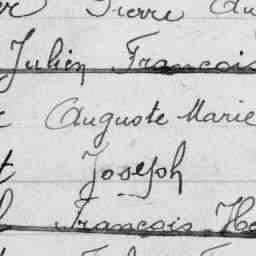 Pierre Au
Julien François
Auguste Marie
Joseph
François